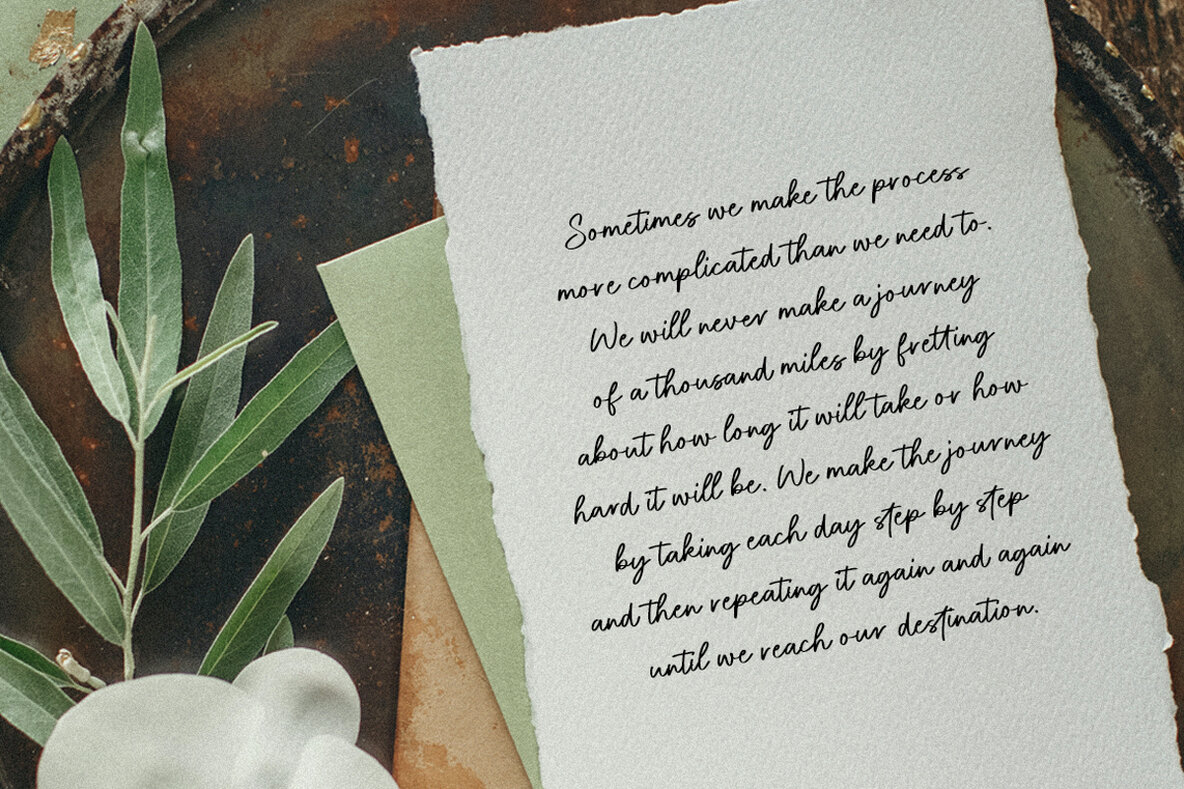 Sometimes we make the process
more complicated than we need to.
We will never make a journey
of a thousand miles by fretting
about how long it will take or how
hard it will be. We make the journey
by taking each day step by step
and then repeating it again and again
until we reach our destination.